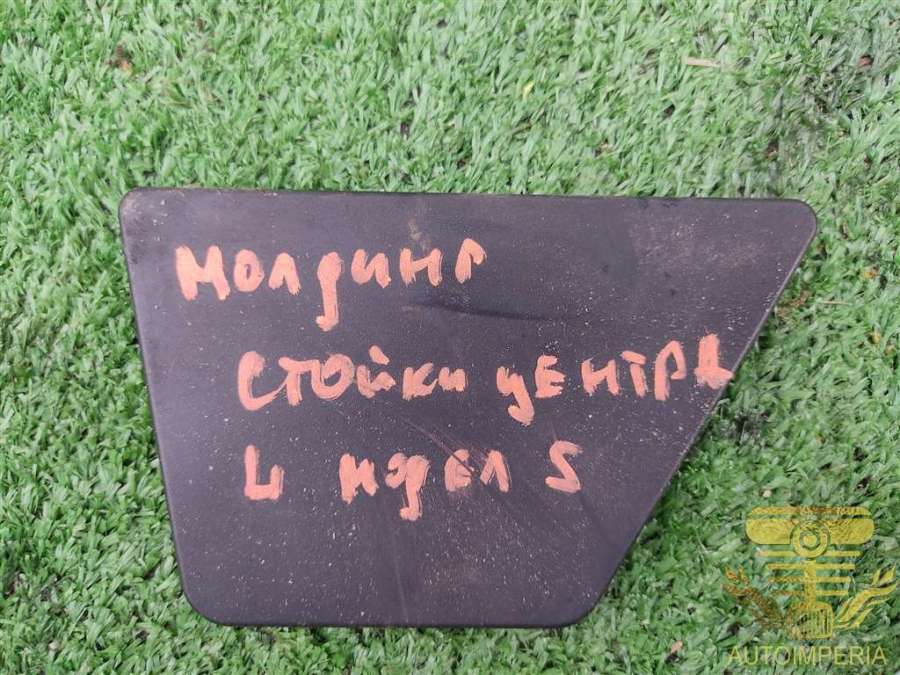 молдинг
стойки центр L
L модел S
AUTOIMPERIA